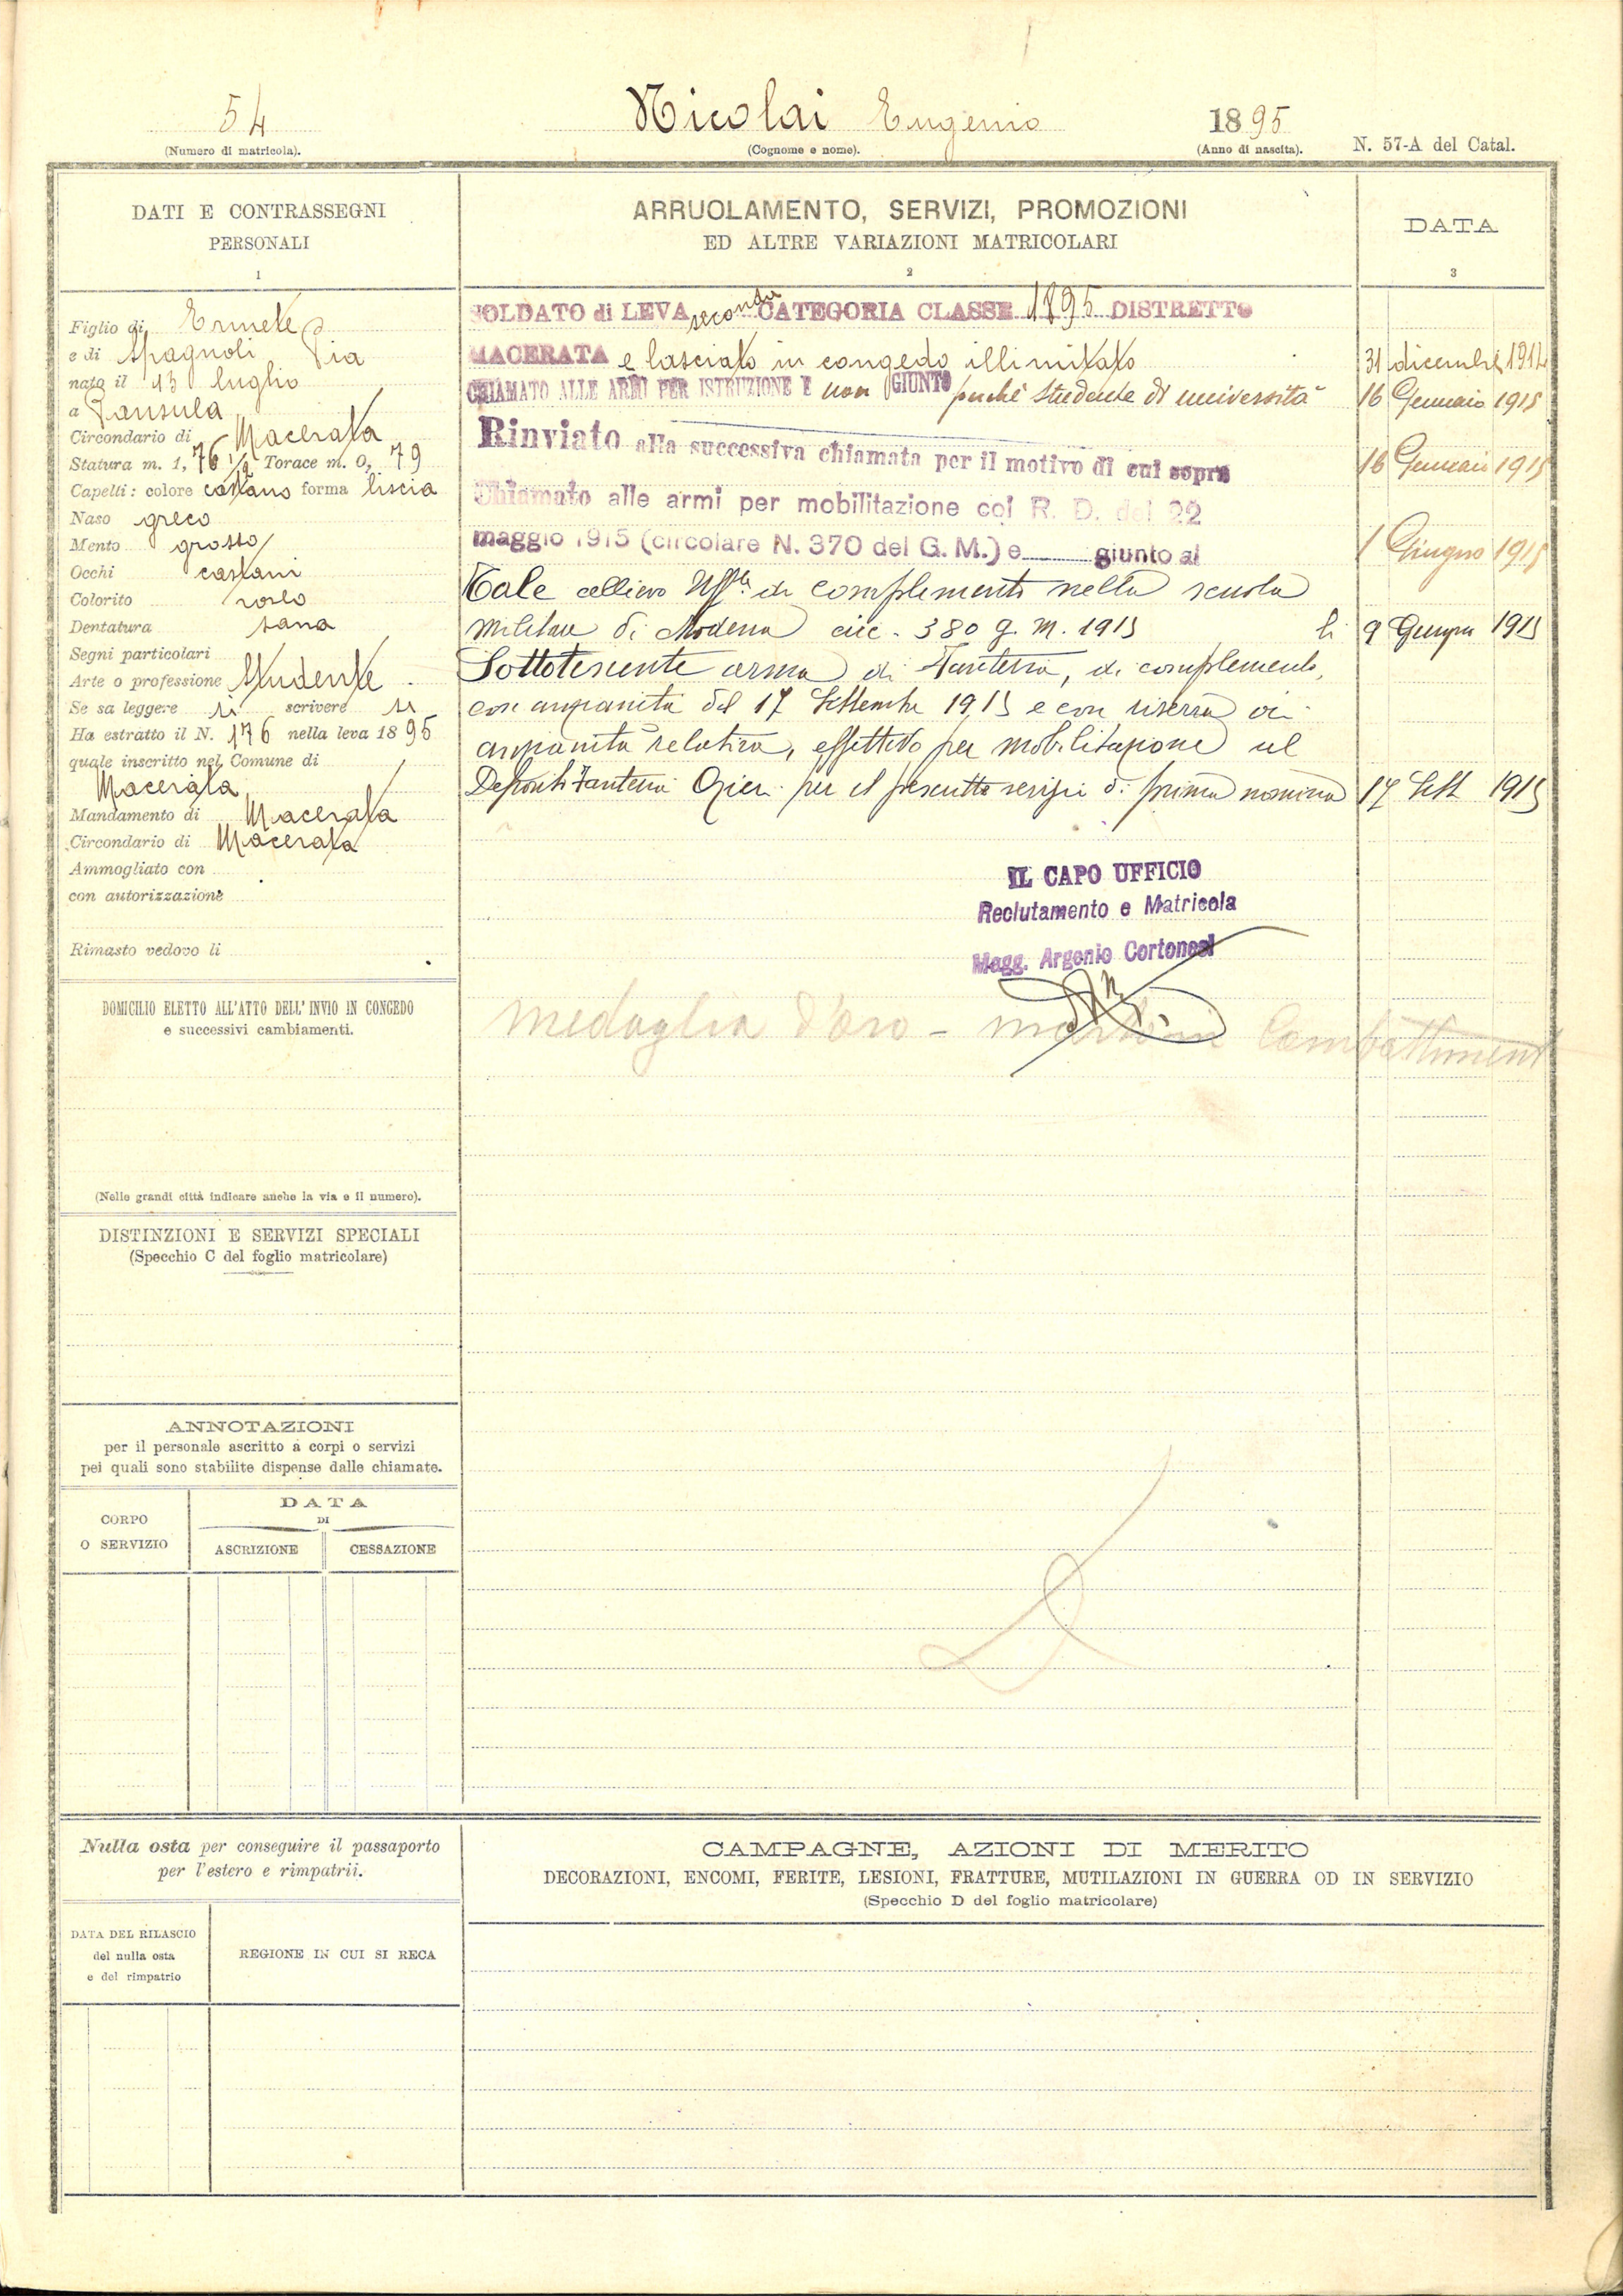 54
(Numero di matricola).
Nicolai Eugenio
(Cognome e nome).
1895
(Anno di nascita).
N. 57-A del Catal.
DATI E CONTRASSEGNI
PERSONALI
1
Figlio di Ermete
e di Spagnoli Pia
nato il 13 luglio
a Pausula
Circondario di Macerata
Statura m. 1, 76 1/2 Torace m. 0, 79
Capelli: colore castano forma liscia
Naso greco
Mento grosso
Occhi castani
Colorito roseo
Dentatura sana
Segni particolari
Arte o professione Studente
Se sa leggere si scrivere si
Ha estratto il N. 176 nella leva 1895
quale inscritto nel Comune di
Macerata
Mandamento di Macerata
Circondario di Macerata
Ammogliato con
con autorizzazione
Rimasto vedovo li
DOMICILIO ELETTO ALL'ATTO DELL'INVIO IN CONGEDO
e successivi cambiamenti.
(Nelle grandi città indicare anche la via e il numero).
DISTINZIONI E SERVIZI SPECIALI
(Specchio C del foglio matricolare)
ANNOTAZIONI
per il personale ascritto a corpi o servizi
pei quali sono stabilite dispense dalle chiamate.
CORPO
O SERVIZIO
DATA
DI
ASCRIZIONE
CESSAZIONE
Nulla osta per conseguire il passaporto
per l'estero e rimpatrii.
DATA DEL RILASCIO
del nulla osta
e del rimpatrio
REGIONE IN CUI SI RECA
ARRUOLAMENTO, SERVIZI, PROMOZIONI
ED ALTRE VARIAZIONI MATRICOLARI
2
DATA
3
SOLDATO di LEVA seconda CATEGORIA CLASSE 1895 DISTRETTO
MACERATA e lasciato in congedo illimitato 31 dicembre 1914
CHIAMATO ALLE ARMI PER ISTRUZIONE E non GIUNTO perchè studente di università 16 Gennaio 1915
Rinviato alla successiva chiamata per il motivo di cui sopra 16 Gennaio 1915
Chiamato alle armi per mobilitazione col R. D. del 22
maggio 1915 (circolare N. 370 del G. M.) e giunto al 1 Giugno 1915
Tale allievo Uff.le di complemento nella scuola
Militare di Modena circ. 380 g. M. 1915 li 9 Giugno 1915
Sottotenente arma di Fanteria, di complemento,
con anzianità del 17 Settembre 1915 e con riserva di
anzianità relativa, effettivo per mobilitazione al
Deposito Fanteria per il prescritto servizio di prima nomina 17 Sett 1915
IL CAPO UFFICIO
Reclutamento e Matricola
Magg. Argenio Cortonesi
medaglia d'oro - Combattimento
CAMPAGNE, AZIONI DI MERITO
DECORAZIONI, ENCOMI, FERITE, LESIONI, FRATTURE, MUTILAZIONI IN GUERRA OD IN SERVIZIO
(Specchio D del foglio matricolare)